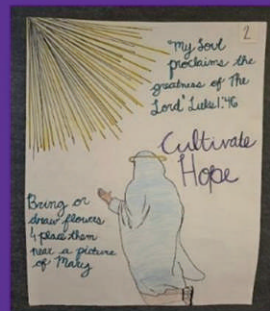 2
"My Soul
proclaims the
greatness of The
Lord" Luke 1:46
Cultivate
Hope
Bring or
draw flowers
& place them
near a picture
of Mary